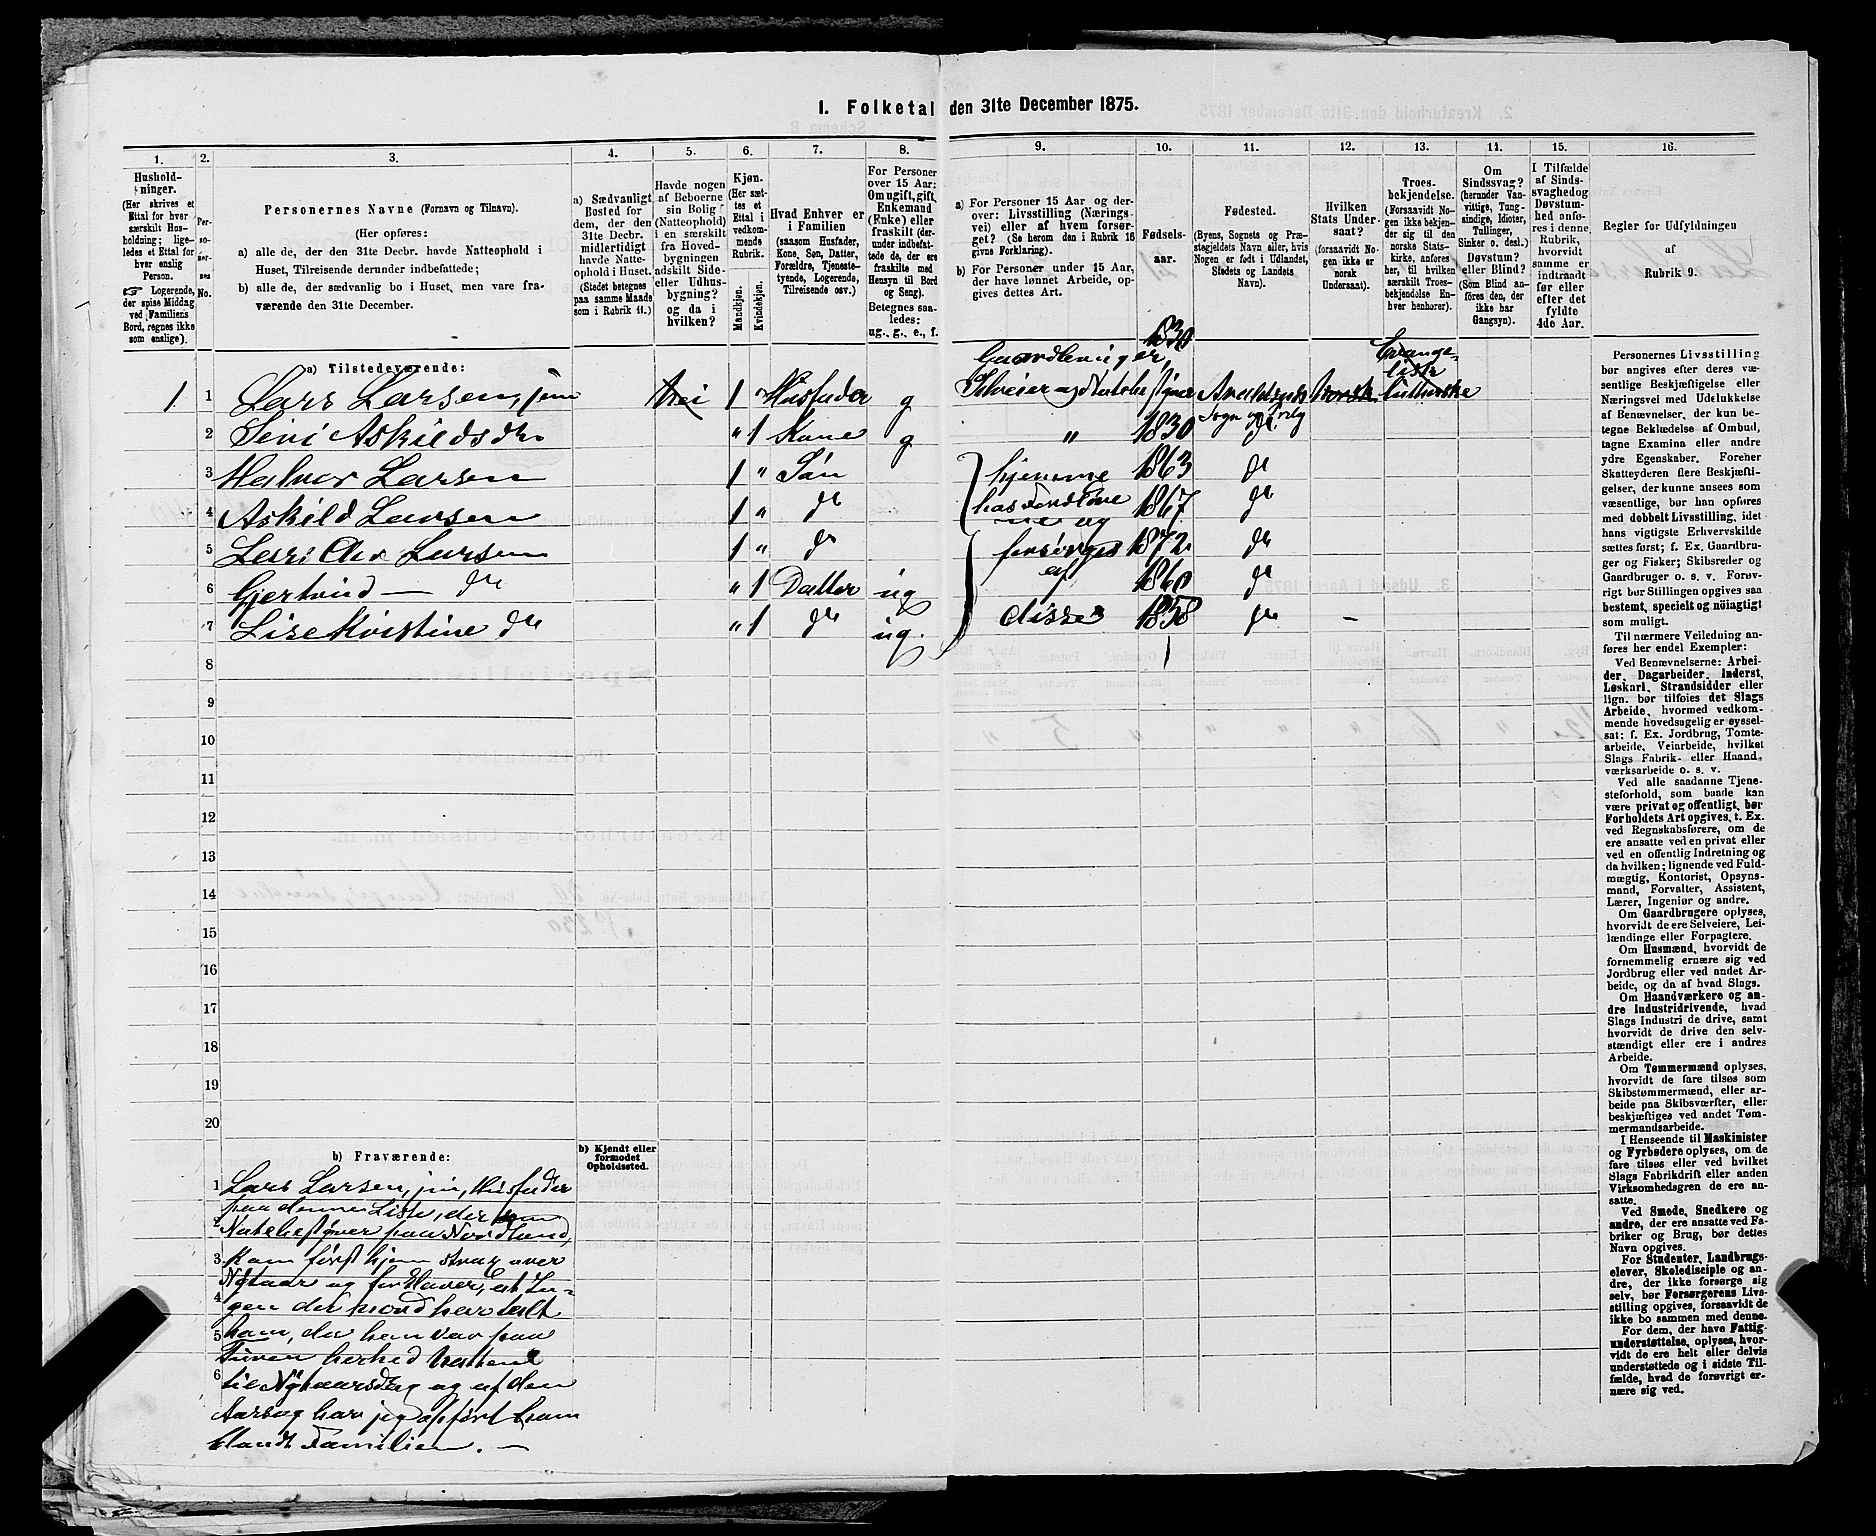 1. Folketal den 31te December 1875.
1.
2.
3.
4.
5.
6.
7.
8.
9.
10.
11.
12.
13.
14.
15.
16.
Hushold-
ninger.
(Her skrives et
Ettal for hver
særskilt Hus-
holdning; lige-
ledes et Ettal for
hver enslig
Person.
☞ Logerende,
der spise Middag
ved Familiens
Bord, regnes ikke
som enslige).
Per-
so-
ner-
nes
No.
Personernes Navne (Fornavn og Tilnavn).
(Her opføres:
a) alle de, der den 31te Decbr. havde Natteophold i
Huset, Tilreisende derunder indbefattede;
b) alle de, der sædvanlig bo i Huset, men vare fra-
værende den 31te December.
a) Sædvanligt
Bosted for
dem, der den
31te Decbr.
midlertidigt
havde Natte-
ophold i Huset.
(Stedet betegnes
paa samme Maade
som i Rubrik 11.)
Havde nogen
af Beboerne
sin Bolig
(Natteophold)
i en særskilt
fra Hoved-
bygningen
adskilt Side-
eller Udhus-
bygning?
og da i
hvilken?
Kjøn.
(Her sæt-
tes et
Ettal i
vedkom-
mende
Rubrik.
Mandkjøn.
Kvindekjøn.
Hvad Enhver er
i Familien
(saasom Husfader,
Kone, Søn, Datter,
Forældre, Tjeneste-
tyende, Logerende,
Tilreisende osv.)
For Personer
over 15 Aar:
Om ugift, gift,
Enkemand
(Enke) eller
fraskilt (der-
under indbefat-
tede de, der ere
fraskilte med
Hensyn til Bord
og Seng).
Betegnes saa-
ledes:
ug., g., e., f.
a) For Personer 15 Aar og der-
over: Livsstilling (Nærings-
vei) eller af hvem forsør-
get? (Se herom den i Rubrik 16
givne Forklaring).
b) For Personer under 15 Aar,
der have lønnet Arbeide, op-
gives dettes Art.
Fødsels-
aar.
Fødested.
(Byens, Sognets og Præ-
stegjeldets Navn eller, hvis
Nogen er født i Udlandet,
Stedets og Landets
Navn).
Hvilken
Stats Under-
saat?
(forsaavidt No-
gen ikke er
norsk
Undersaat).
Troes-
bekjendelse.
(Forsaavidt No-
gen ikke bekjen-
der sig til den
norske Stats-
kirke, anføres
her, til hvilken
særskilt Troes-
bekjendelse En-
hver henhører).
Om
Sindssvag?
(herunder Van-
vittige, Tung-
sindige, Idioter,
Tullinger,
Sinker o. desl.)
Døvstum?
eller Blind?
(Som Blind an-
føres den, der
ikke har
Gangsyn).
I Tilfælde
af Sinds-
svaghed og
Døvstum-
hed anfø-
res i denne
Rubrik,
hvorvidt
samme er
indtraadt
før eller
efter det
fyldte
4de Aar.
Regler for Udfyldningen
af
Rubrik 9.
a) Tilstedeværende:
Gaardbruger, 1830 Evange-
liske
1 1 Lars Larsen, jun Nei 1 " Husfader g Selveier og Notebestyrer Norsk lutherske
2 " 1 Kone g " 1830 do.
3 Halvor Larsen 1 " Søn hjemme 1863 do
4 Askild Larsen 1 " do 1867 do
5 Larsen 1 " do forsørges 1872 do
6 Gjertrud — do " 1 Datter ug af 1860 do
7 Lise Kristine do " 1 do ug. disse 1858 do –
8
9
10
11
12
13
14
15
16
17
18
19
20
Personernes Livsstilling
bør angives efter deres væ-
sentlige Beskjæftigelse eller
Næringsvei med Udelukkelse
af Benævnelser, der kun be-
tegne Beklædelse af Ombud,
tagne Examina eller andre
ydre Egenskaber. Forener
Skatteyderen flere Beskjæfti-
gelser, der kunne ansees som
væsentlige, bør han opføres
med dobbelt Livsstilling, idet
hans vigtigste Erhvervskilde
sættes først; f. Ex. Gaardbru-
ger og Fisker; Skibsreder og
Gaardbruger o. s. v. Forøv-
rigt bør Stillingen opgives saa
bestemt, specielt og nöiagtigt
som muligt.
Til nærmere Veiledning an-
føres her endel Exempler:
Ved Benævnelserne: Arbei-
der, Dagarbeider, Inderst,
Løskarl, Strandsidder eller
lign. bør tilføies det Slags
Arbeide, hvormed vedkom-
mende hovedsagelig er syssel-
sat; f. Ex. Jordbrug, Tomte-
arbeide, Veiarbeide, hvilket
Slags Fabrik- eller Haand-
værksarbeide o. s. v.
Ved alle saadanne Tjene-
steforhold, som baade kan
være privat og offentligt, bør
Forholdets Art opgives, t. Ex.
ved Regnskabsførere, om de
ere ansatte ved en privat eller
ved en offentlig Indretning og
da hvilken; lignende ved Fuld-
mægtig, Kontorist, Opsyns-
mand, Forvalter, Assistent,
Lærer, Ingeniør og andre.
Om Gaardbrugere oplyses,
hvorvidt de ere Selveiere, Lei-
lændinge eller Forpagtere.
Om Husmænd, hvorvidt de
fornemmelig ernære sig ved
Jordbrug eller ved andet Ar-
beide, og da af hvad Slags.
Om Haandværkere og an-
dre Industridrivende, hvad
Slags Industri de drive, samt
hvorvidt de drive den selv-
stændigt eller ere i andres
Arbeide.
Om Tømmermænd oplyses,
hvorvidt de fare tilsøs som
Skibstømmermænd, eller ar-
beide paa Skibsværfter, eller
beskjæftiges ved andet Tøm-
mermandsarbeide.
I Henseende til Maskinister
og Fyrbødere oplyses, om de
fare tilsøs eller ved hvilket
Slags Fabrikdrift eller anden
Virksomhedsgren de ere an-
satte.
Ved Smede, Snedkere og
andre, der ere ansatte ved Fa-
briker og Brug, bør dettes
Navn opgives.
For Studenter, Landbrugs-
elever, Skoledisciple og an-
dre, der ikke forsørge sig
selv, bør Forsørgerens Livs-
stilling opgives, forsaavidt de
ikke bo sammen med denne.
For dem, der have Fattig-
understøttelse, oplyses, hvor-
vidt de ere helt eller delvis
understøttede og i sidste Til-
fælde, hvad de forøvrigt er-
nære sig ved.
b) Fraværende:
b) Kjendt eller
formodet
Opholdssted.
1 Lars Larsen, jun, Husfader
paa denne Liste, der som
2 Notebestyrer paa Nordland,
3 kom først hjem strax over
Nytaar og
4
5 ham, da han var paa
6 til Nytaarsdag og af den
Aarsag har jeg opført ham
blandt Familien. –